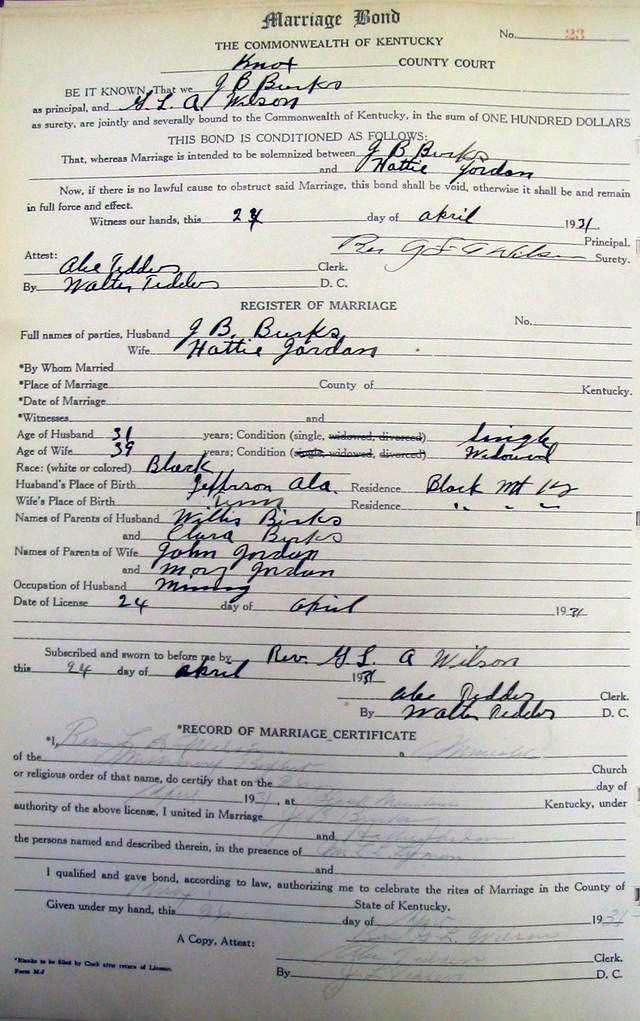 Marriage Bond
No. 23
THE COMMONWEALTH OF KENTUCKY
Knox COUNTY COURT
BE IT KNOWN, That we J B Burks
as principal, and G. L. A. Wilson
as surety, are jointly and severally bound to the Commonwealth of Kentucky, in the sum of ONE HUNDRED DOLLARS
THIS BOND IS CONDITIONED AS FOLLOWS:
That, whereas Marriage is intended to be solemnized between J B Burks
and Hattie Jordan
Now, if there is no lawful cause to obstruct said Marriage, this bond shall be void, otherwise it shall be and remain
in full force and effect.
Witness our hands, this 24 day of april 1931
Principal,
Rev G L A Wilson Surety.
Attest:
Alec Tedders Clerk.
By Walter Tedders D. C.
REGISTER OF MARRIAGE
No.
Full names of parties, Husband J B. Burks
Wife Hattie Jordan
*By Whom Married
*Place of Marriage County of Kentucky.
*Date of Marriage
*Witnesses and
Age of Husband 31 years; Condition (single, widowed, divorced) Single
Age of Wife 39 years; Condition (single, widowed, divorced) Widowed
Race: (white or colored) Black
Husband's Place of Birth Jefferson Ala. Residence Black Mt Ky
Wife's Place of Birth Residence " " "
Names of Parents of Husband Willis Burks
and Clara Burks
Names of Parents of Wife John Jordan
and Mary Jordan
Occupation of Husband Mining
Date of License 24 day of april 1931
Subscribed and sworn to before me by Rev. G L. A Wilson
this 24 day of april 1931
Alec Tedders Clerk.
By Walter Tedders D. C.
*RECORD OF MARRIAGE CERTIFICATE
*I, Rev a Minister
of the Missionary Baptist Church
or religious order of that name, do certify that on the day of
April 1931, at Black Mountain Kentucky, under
authority of the above license, I united in Marriage J B Burks
and Hattie Jordan
the persons named and described therein, in the presence of
and
I qualified and gave bond, according to law, authorizing me to celebrate the rites of Marriage in the County of
State of Kentucky.
Given under my hand, this day of 1931
Rev G. L. Wilson
A Copy, Attest: Clerk.
By D. C.
*Blanks to be filed by Clerk after return of License.
Form M-J